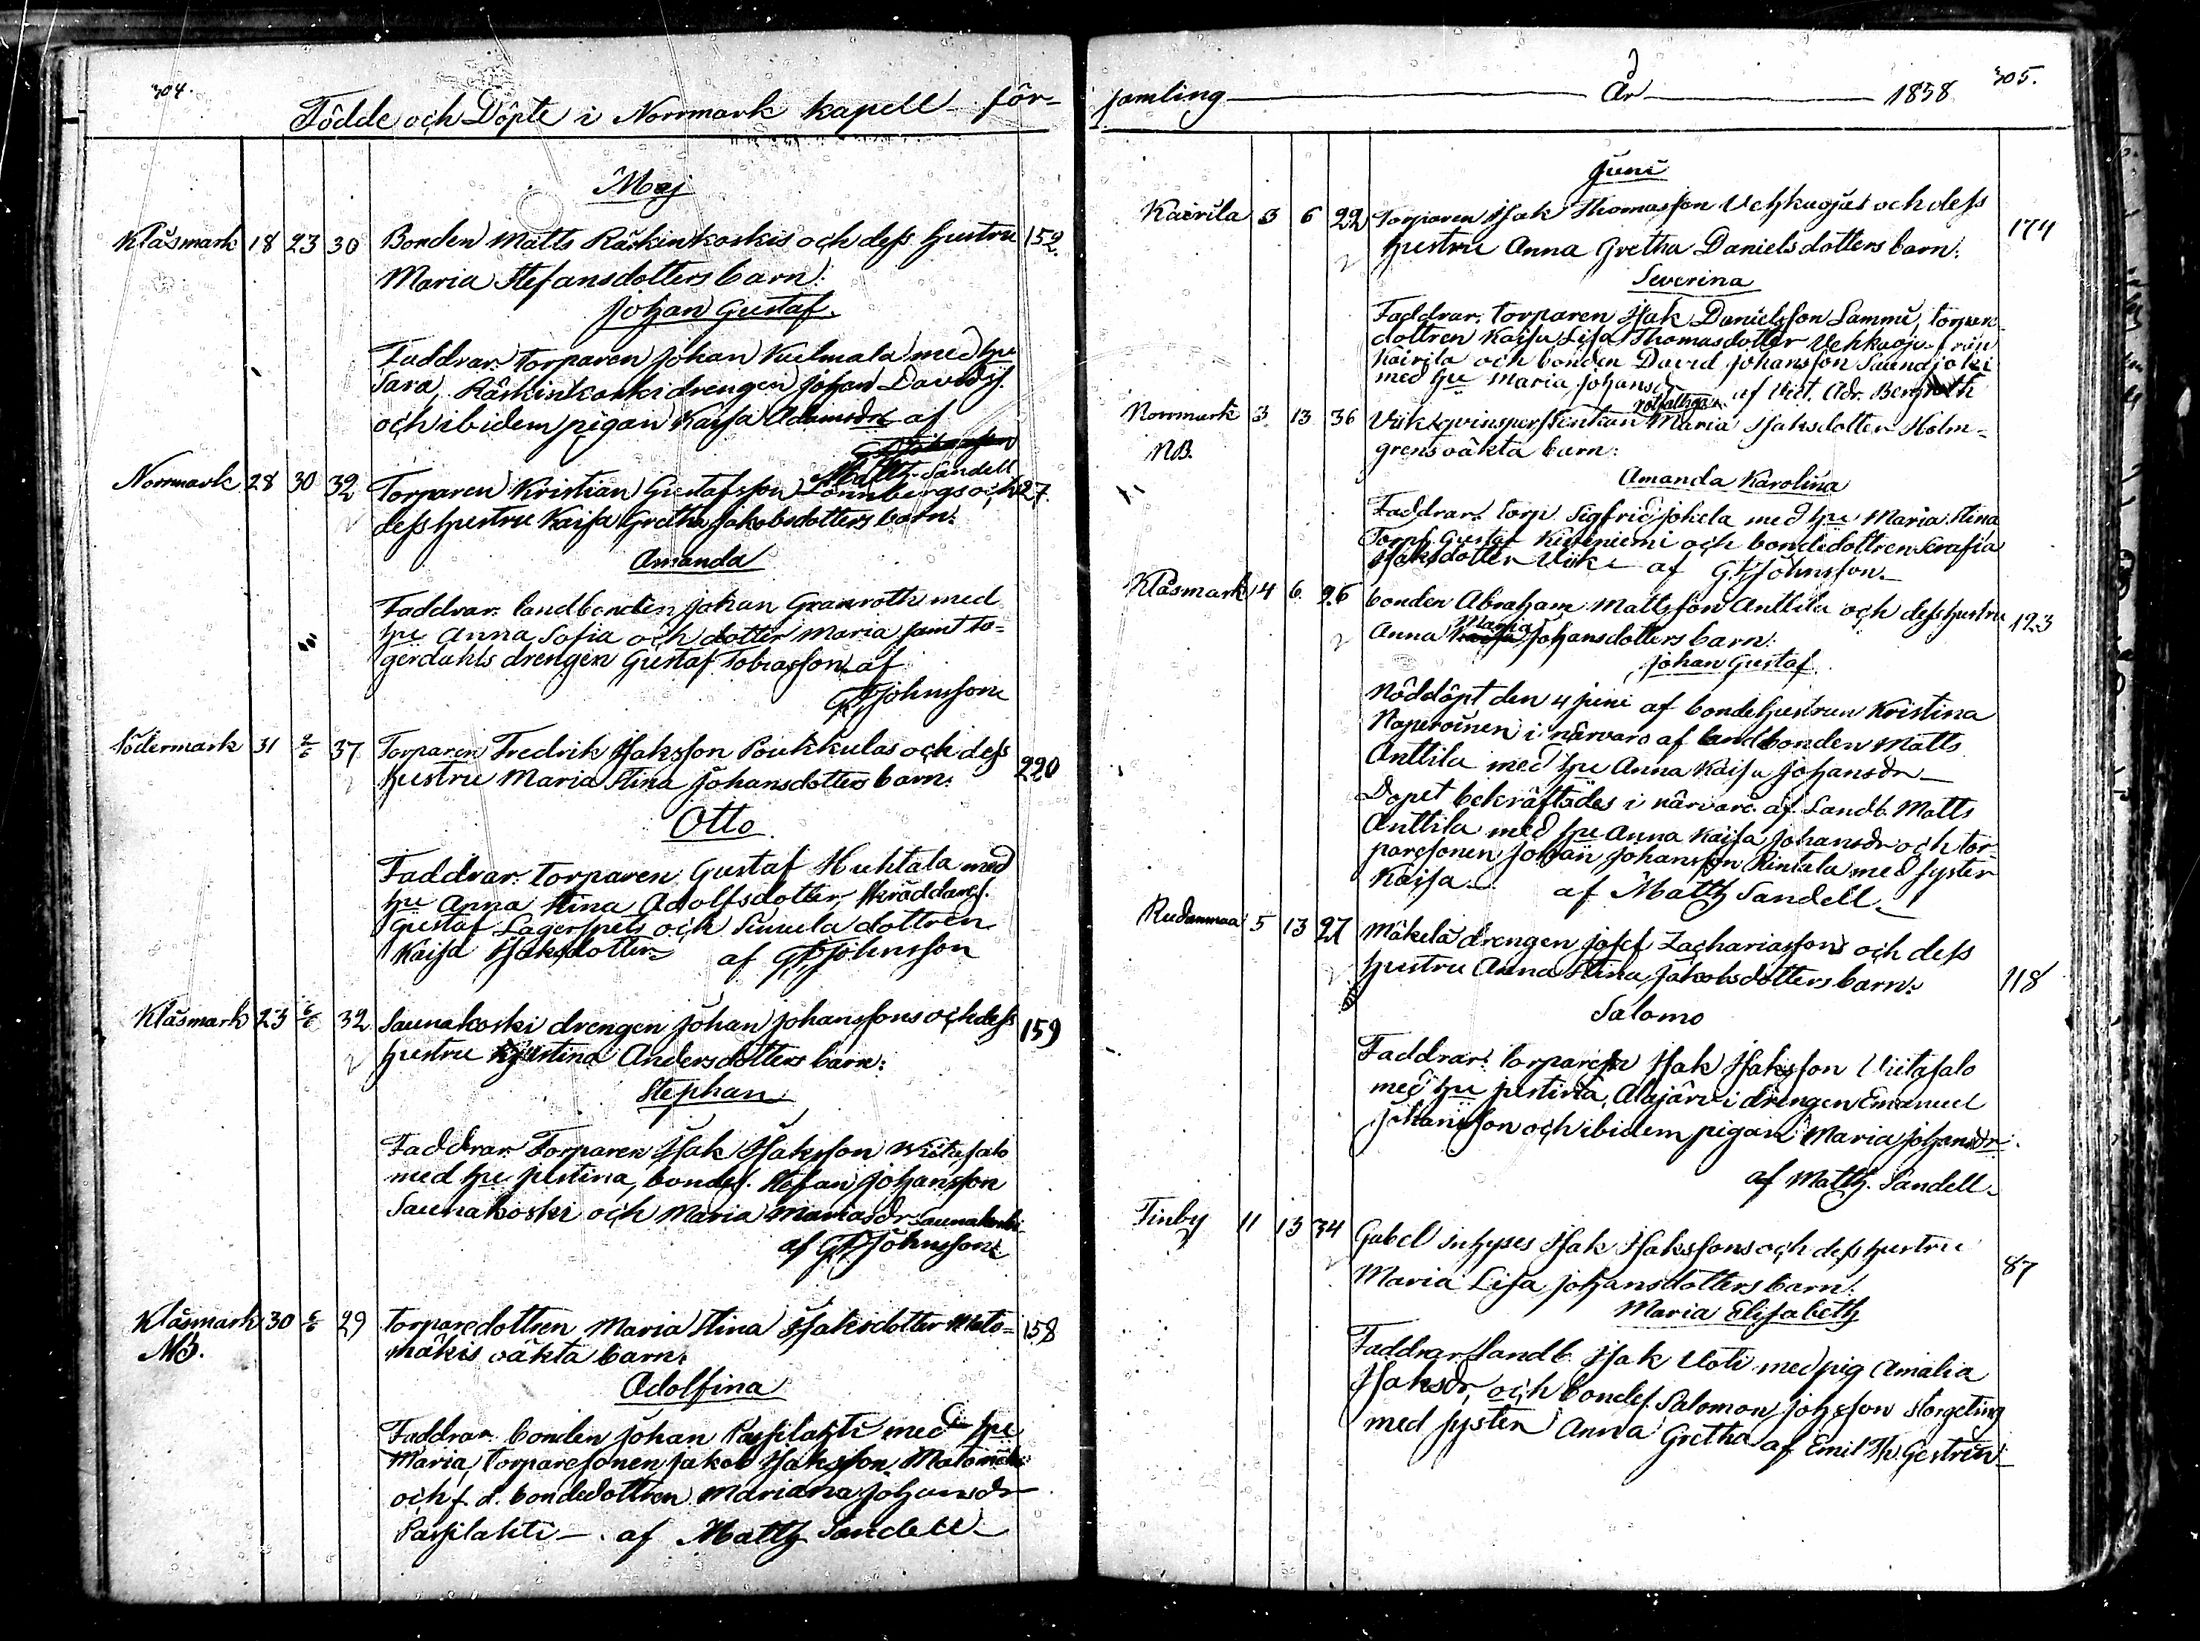 304.
Födde och Döpte i Norrmark kapell för-
Maj
Klåsmark 18 23 30 Bonden Matts Räikinkoskis och dess hustru 152.
Maria Stefansdotters barn:
Johan Gustaf.
Faddrar: torparen Johan Kuelmala med hu
Sara, Räikinkoski drengen Johan Davidss.
och ibidem pigan Kaisa Adamsdr af
Matth. Sandell
Norrmark 28 30 32 Torparen Kristian Gustafsson Lönnbergs och 27.
dess hustru Kaisa Gretha Jakobsdotters barn:
Amanda
Faddrar: landbonden Johan Granroth med
hu Anna Sofia och dotter Maria samt To-
gerdahls drengen Gustaf Tobiasson af
GFJohnsson
Södermark 31 2/6 37 Torparen Fredrik Isaksson Poukkulas och dess 220
hustru Maria Stina Johansdotters barn:
Otto
Faddrar: torparen Gustaf Huhtala med
hu Anna Stina Adolfsdotter, Skräddares.
Gustaf Lagerspets och Simula dottren
Kaisa Isaksdotter af GFJohnsson
Klåsmark 23 6/6 32 Saunakoski drengen Johan Johanssons och dess 159
hustru Kristina Andersdotters barn:
Stephan
Faddrar: Torparen Isak Isaksson Wiitasalo
med hu Justina, bondes. Stefan Johansson
Saunakoski och Maria Mariasdr Saunakoski
af GFJohnsson
Klåsmark 30 6/6 29 torparedottren Maria Stina Isaksdotter Mato- 158
NB. mäkis oäkta barn:
Adolfina
Faddrar: bonden Johan Passilahti med hu
Maria, torparesonen Jakob Isaksson Matomäki
och f. d. bondedottren Mariana Johansdr
Passilahti af Matth Sandell
305.
samling År 1858
Juni
Kairila 3 6 22 Torparen Isak Thomasson Vehkaojas och dess 174
hustru Anna Gretha Danielsdotters barn:
Severina
Faddrar: torparen Isak Danielsson Lammi, torpare-
dottren Kaisa Lisa Thomasdotter Vehkaoja från
Kairila och bonden David Johansson Saunajoki
med hu Maria Johansdr af Vict. Adr. Bergroth
Norrmark 3. 13 36 Viik qvinspers Enkan rotfattiga Maria Isaksdotter Holm-
NB. grens oäkta barn:
Amanda Karolina
Faddrar: torp Sigfrid Jokela med hu Maria Stina
Torps. Gustaf Kiviniemi och bondedottren Serafia
Isaksdotter Viik af GFJohnsson.
Klåsmark 4 6. 26 bonden Abraham Mattsson Anttila och dess hustru 123
Anna Maria Johansdotters barn:
Johan Gustaf.
Nöddöpt den 4 juni af bondehustrun Kristina
Noperoinen i närvaro af landbonden Matts
Anttila med hu Anna Kaisa Johansdr
Dopet bekräftades i närvaro af Landb. Matts
Anttila med hu Anna Kaisa Johansdr och tor-
paresonen Johan Johansson Rintala med syster
Kaisa. af Matth Sandell.
Rudanmaa 5 13 27 Mäkelä drengen Josef Zachariassons och dess
hustru Anna Stina Jakobsdotters barn: 118
Salomo
Faddrar: torparen Isak Isaksson Viitasalo
med hu Justina, Alajärvi drengen Emanuel
Johansson och ibidem pigan Maria Johansdr.
af Matth. Sandell.
Finby 11 13 34 Gabel inhyses Isak Isakssons och dess hustru
Maria Lisa Johansdotters barn: 87
Maria Elisabeth
Faddrar: Landb. Isak Uoti med pig Amalia
Isaksdr, och bondes. Salomon Johsson Storgeting
med syster Anna Gretha af Emil Th. Gestrin